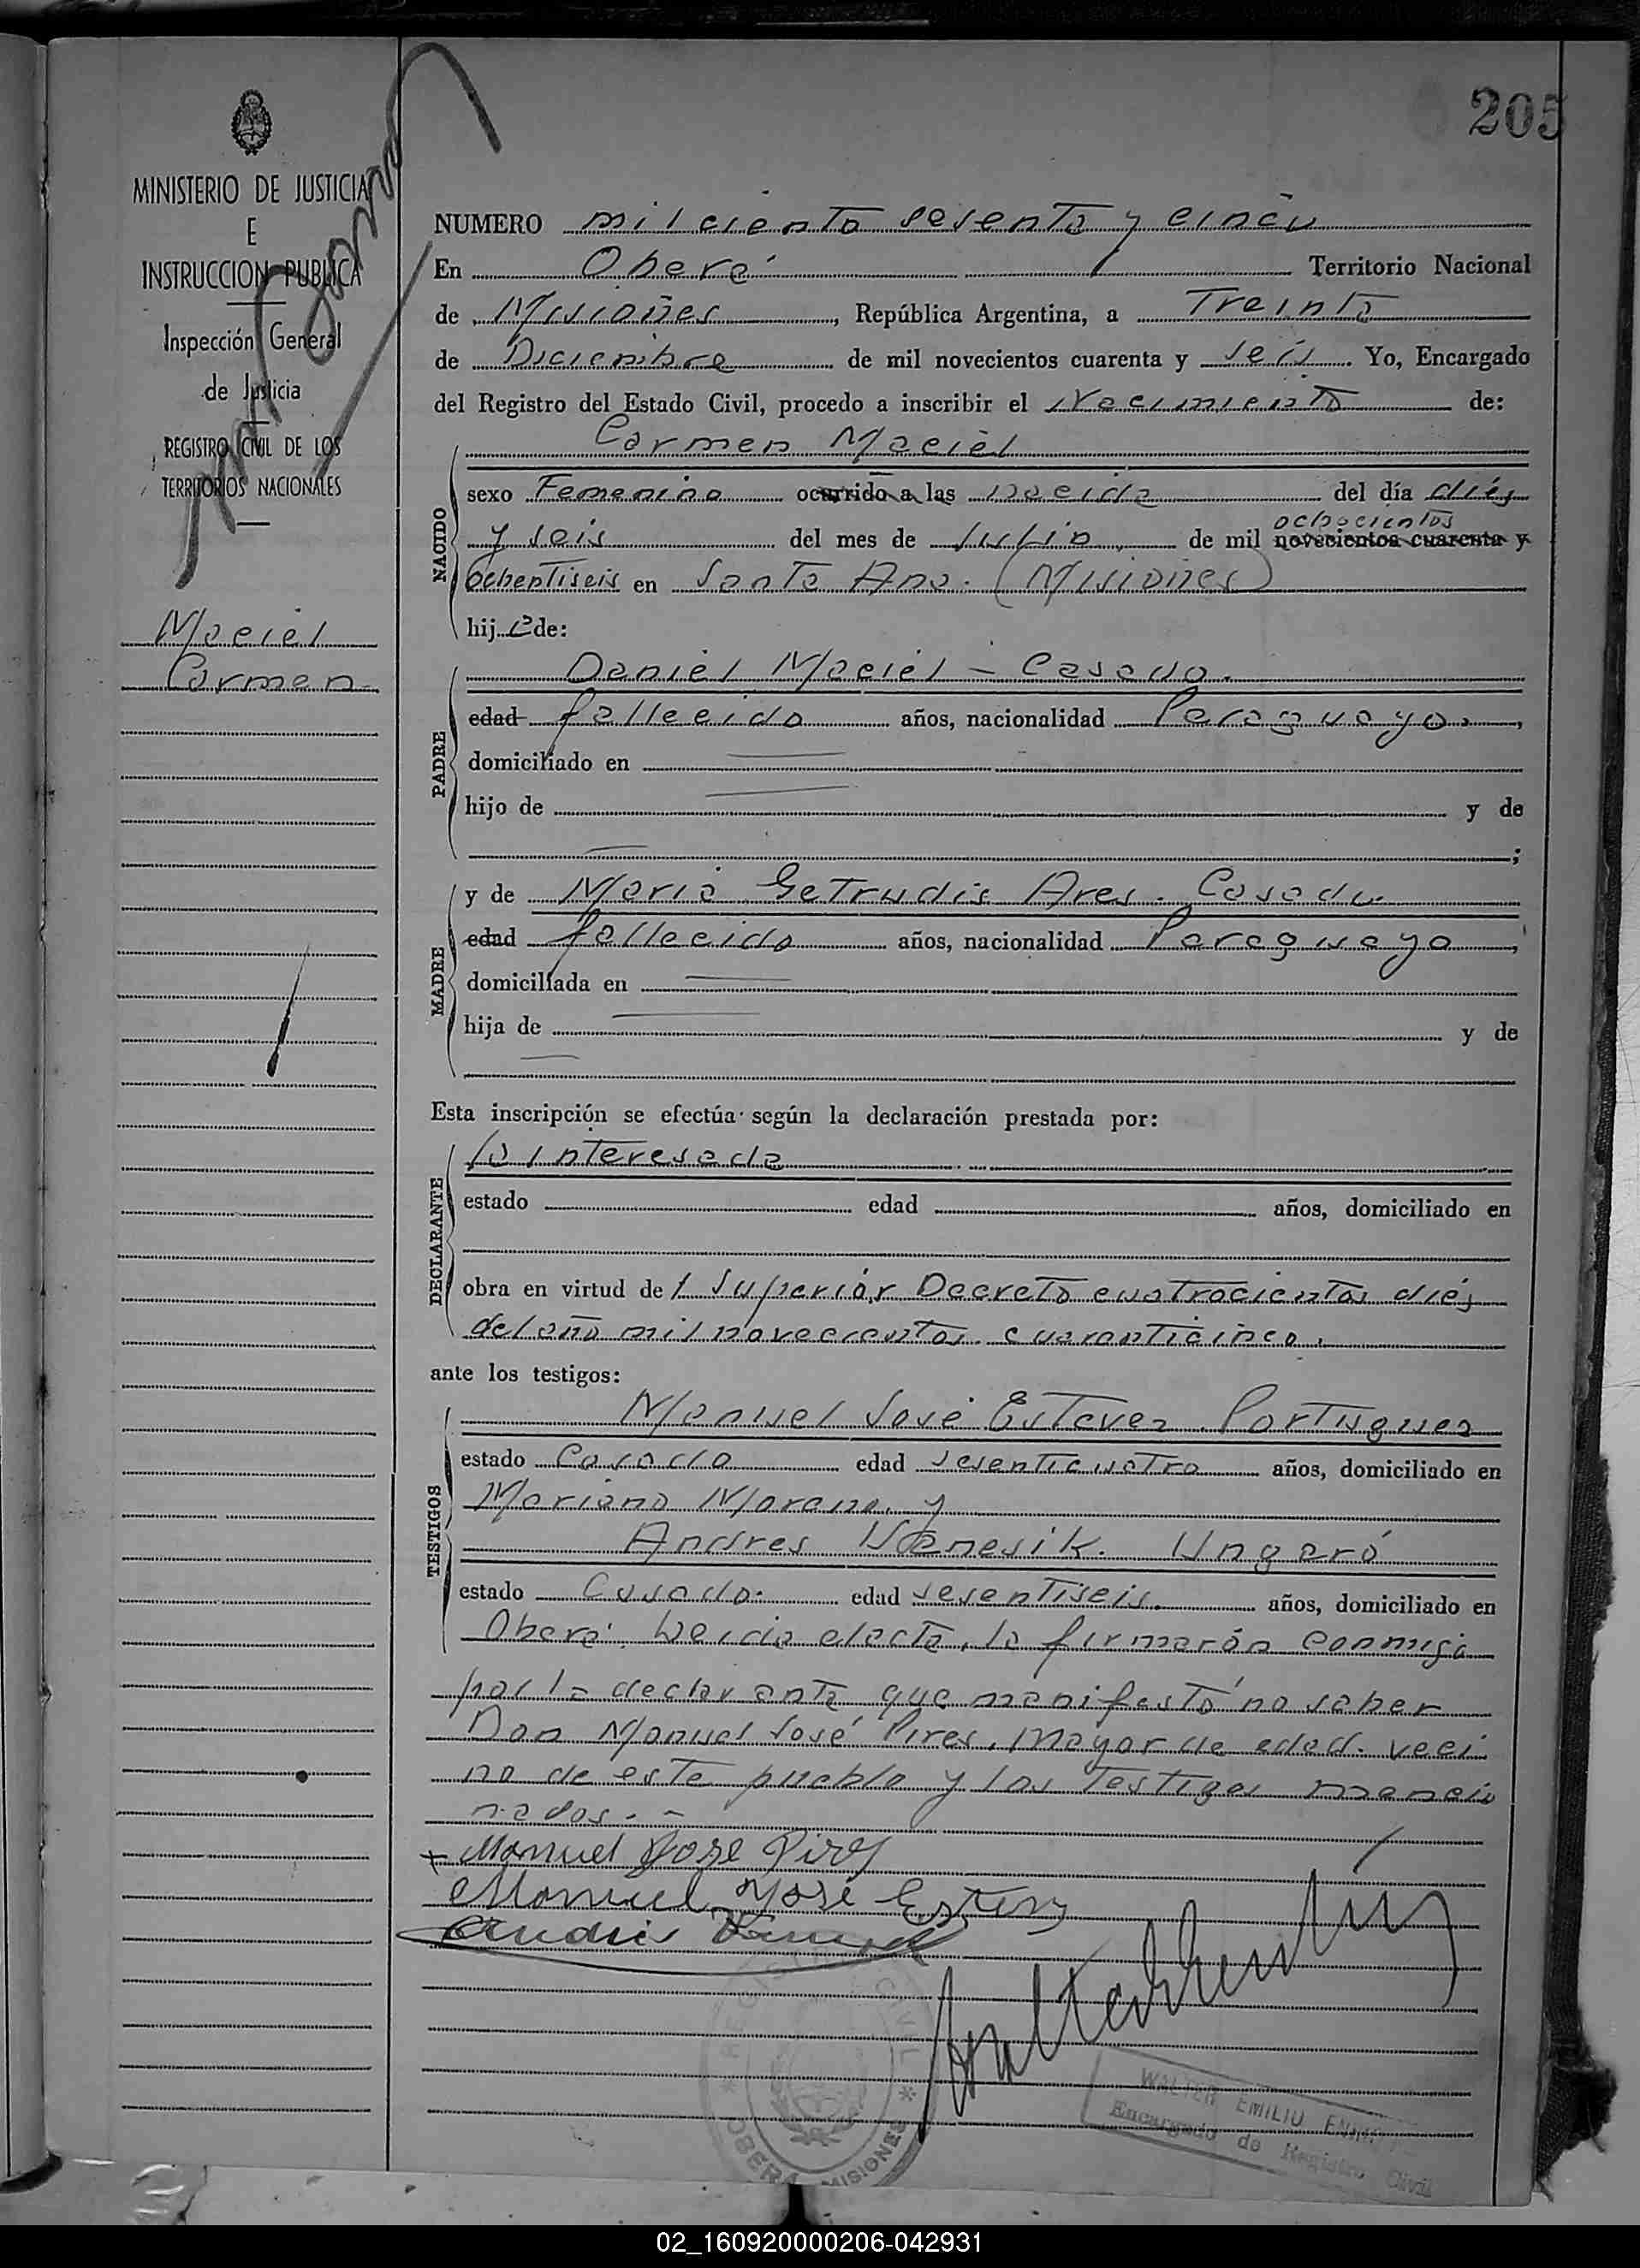 205
MINISTERIO DE JUSTICIA
E
INSTRUCCION PUBLICA
Inspección General
de Justicia
REGISTRO CIVIL DE LOS
TERRITORIOS NACIONALES
Maciel
Carmen
NUMERO mil ciento sesenta y cinco
En Oberá Territorio Nacional
de Misiones, República Argentina, a Treinta
de Diciembre de mil novecientos cuarenta y seis. Yo, Encargado
del Registro del Estado Civil, procedo a inscribir el Nacimiento de:
Carmen Maciel
NACIDO
sexo Femenino ocurrido a las nacida del día diés
ochocientos
y seis del mes de Julio de mil novecientos cuarenta y
ochentiseis en Santa Ana. (Misiones)
hija de:
PADRE
Daniel Maciel - Casado.
edad fallecido años, nacionalidad Paraguayo,
domiciliado en
hijo de y de
;
MADRE
y de Maria Getrudis Ares. Casada.
edad fallecida años, nacionalidad Paraguaya,
domiciliada en
hija de y de
Esta inscripción se efectúa según la declaración prestada por:
DECLARANTE
la interesada
estado edad años, domiciliado en
obra en virtud de l Superiór Decreto cuatrocientos diés
del año mil novecientos cuarenticinco.
ante los testigos:
TESTIGOS
Manuel José Estevez. Portuguez
estado Casado edad sesenticuatro años, domiciliado en
Mariano Moreno. y
Andres Vanesik. Ungaró
estado Casado. edad sesentiseis. años, domiciliado en
Oberá. Leida el acta, la firmarón conmigo
por la declarante que manifestó no saber
Don Manuel José Pires, mayor de edad. veci
no de este pueblo y los Testigos mencio
nados.-
+ Manuel Jose Pires
Manuel José Estevez
Andres
REGISTRO CIVIL
OBERA MISIONES
WALTER EMILIO
Encargado de Registro Civil
02_160920000206-042931